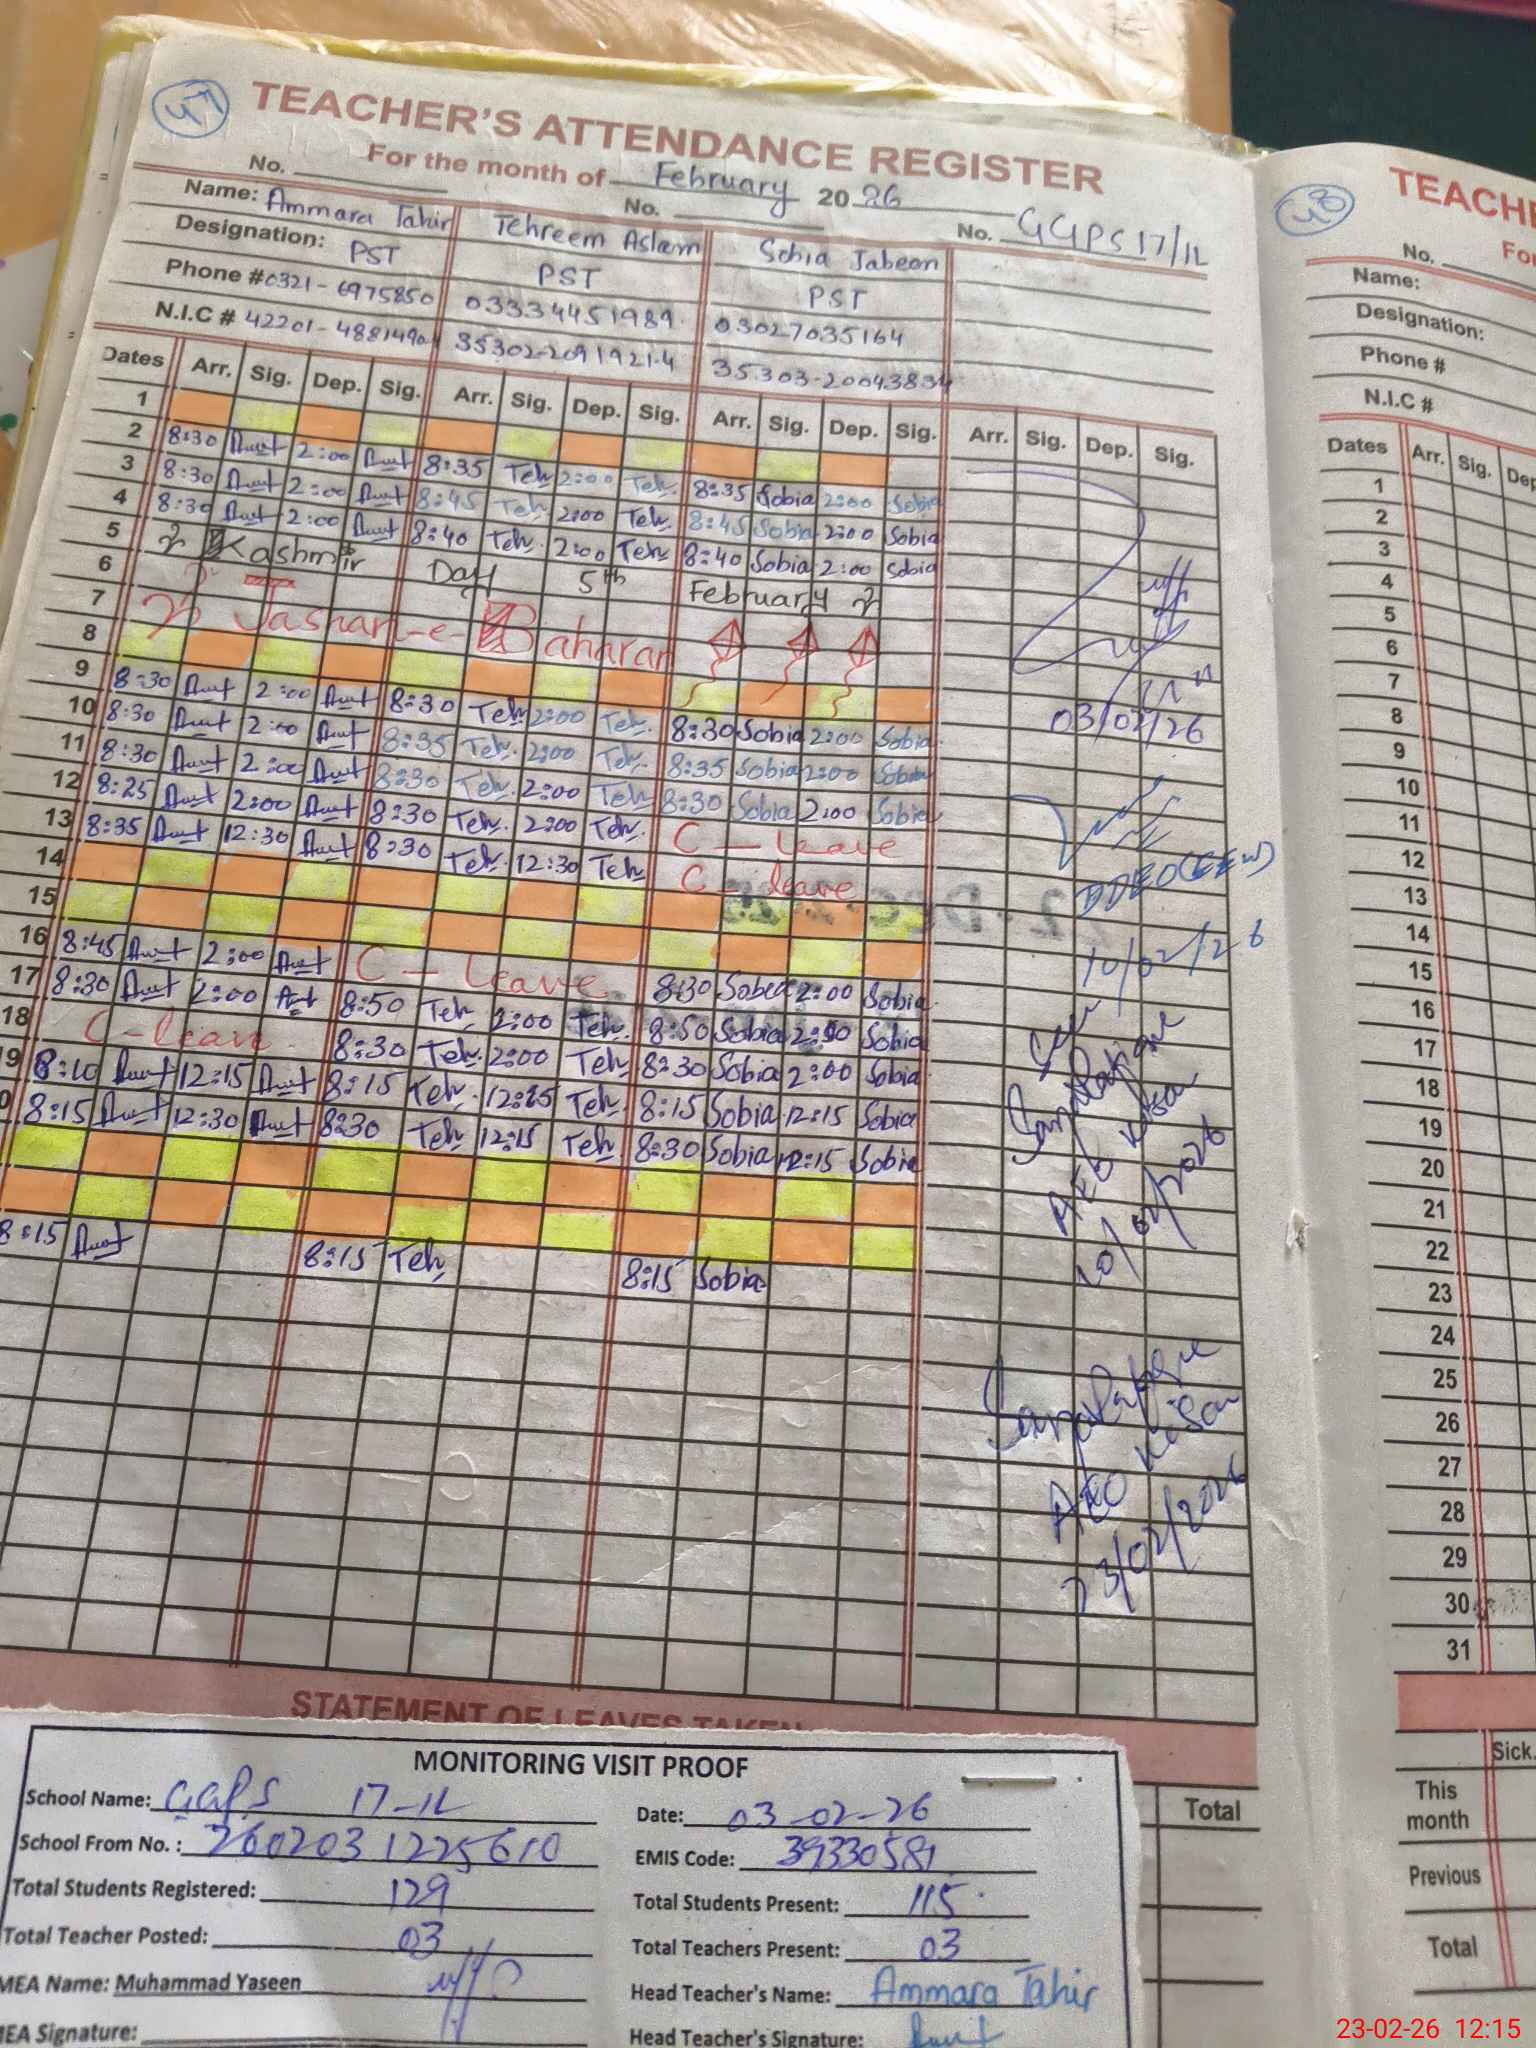 47
TEACHER'S ATTENDANCE REGISTER
For the month of February 2026
No. No. No. GGPS 17/1L
Name: Ammara Tahir Tehreem Aslam Sobia Jabeen
Designation: PST PST PST
Phone # 0321-6975850 03334451989 03027035164
N.I.C # 35302-2091921-4 35303-20043834
Dates Arr. Sig. Dep. Sig. Arr. Sig. Dep. Sig. Arr. Sig. Dep. Sig. Arr. Sig. Dep. Sig.
1
2 8:30 2:00 8:35 Teh 2:00 Teh. 8:35 Sobia 2:00 Sobia
3 8:30 2:00 8:45 Teh 2:00 Teh. 8:45 Sobia 2:00 Sobia
4 8:30 2:00 8:40 Teh. 2:00 Teh 8:40 Sobia 2:00 Sobia
5 Kashmir Day 5th February
6
7 Jashan-e-Baharan
8
9 8:30 2:00 8:30 Teh 2:00 Teh. 8:30 Sobia 2:00 Sobia
10 8:30 2:00 8:35 Teh. 2:00 Teh. 8:35 Sobia 2:00 Sobia
11 8:30 2:00 8:30 Teh. 2:00 Teh 8:30 Sobia 2:00 Sobia
12 8:25 2:00 8:30 Teh. 2:00 Teh. C - leave
13 8:35 12:30 8:30 Teh. 12:30 Teh C - leave
14
15
16 8:45 2:00 C - Leave 8:30 Sobia 2:00 Sobia
17 8:30 2:00 8:50 Teh 2:00 Teh. 8:50 Sobia 2:00 Sobia
18 C-leave 8:30 Teh. 2:00 Teh 8:30 Sobia 2:00 Sobia
9 8:10 12:15 8:15 Teh. 12:15 Teh. 8:15 Sobia 12:15 Sobia
0 8:15 12:30 8:30 Teh 12:15 Teh. 8:30 Sobia 12:15 Sobia
8:15 8:15 Teh 8:15 Sobia
03/02/26
DDEO(EE-W)
10/02/26
AEO Kisan
10/02/2026
AEO Kisan
23/02/2026
STATEMENT OF LEAVES TAKEN
MONITORING VISIT PROOF
School Name: GGPS 17-1L Date: 03-02-26
School From No. : 2602031225610 EMIS Code: 39330581
Total Students Registered: 129 Total Students Present: 115
Total Teacher Posted: 03 Total Teachers Present: 03
MEA Name: Muhammad Yaseen Head Teacher's Name: Ammara Tahir
Signature: Head Teacher's Signature:
Total
48
TEACHE
No.
Name:
Designation:
Phone #
N.I.C #
Dates Arr. Sig. Dep
1
2
3
4
5
6
7
8
9
10
11
12
13
14
15
16
17
18
19
20
21
22
23
24
25
26
27
28
29
30
31
Sick.
This month
Previous
Total
23-02-26 12:15